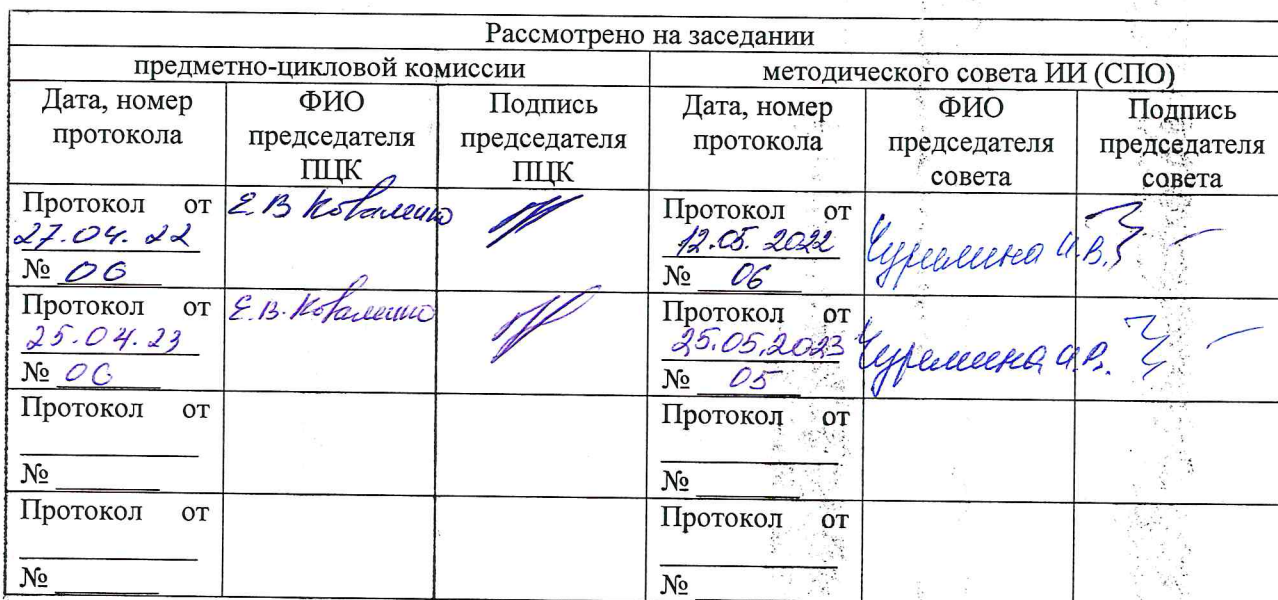 Рассмотрено на заседании
предметно-цикловой комиссии
методического совета ИИ (СПО)
Дата, номер
протокола
ФИО
председателя
ПЦК
Подпись
председателя
ПЦК
Дата, номер
протокола
ФИО
председателя
совета
Подпись
председателя
совета
Протокол от
27.04.22
№ 06
Е.В Коваленко
Протокол от
12.05.2022
№ 06
И.В.
Протокол от
25.04.23
№ 06
Е.В. Коваленко
Протокол от
25.05.2023
№ 05
И.В.
Протокол от
№
Протокол от
№
Протокол от
№
Протокол от
№